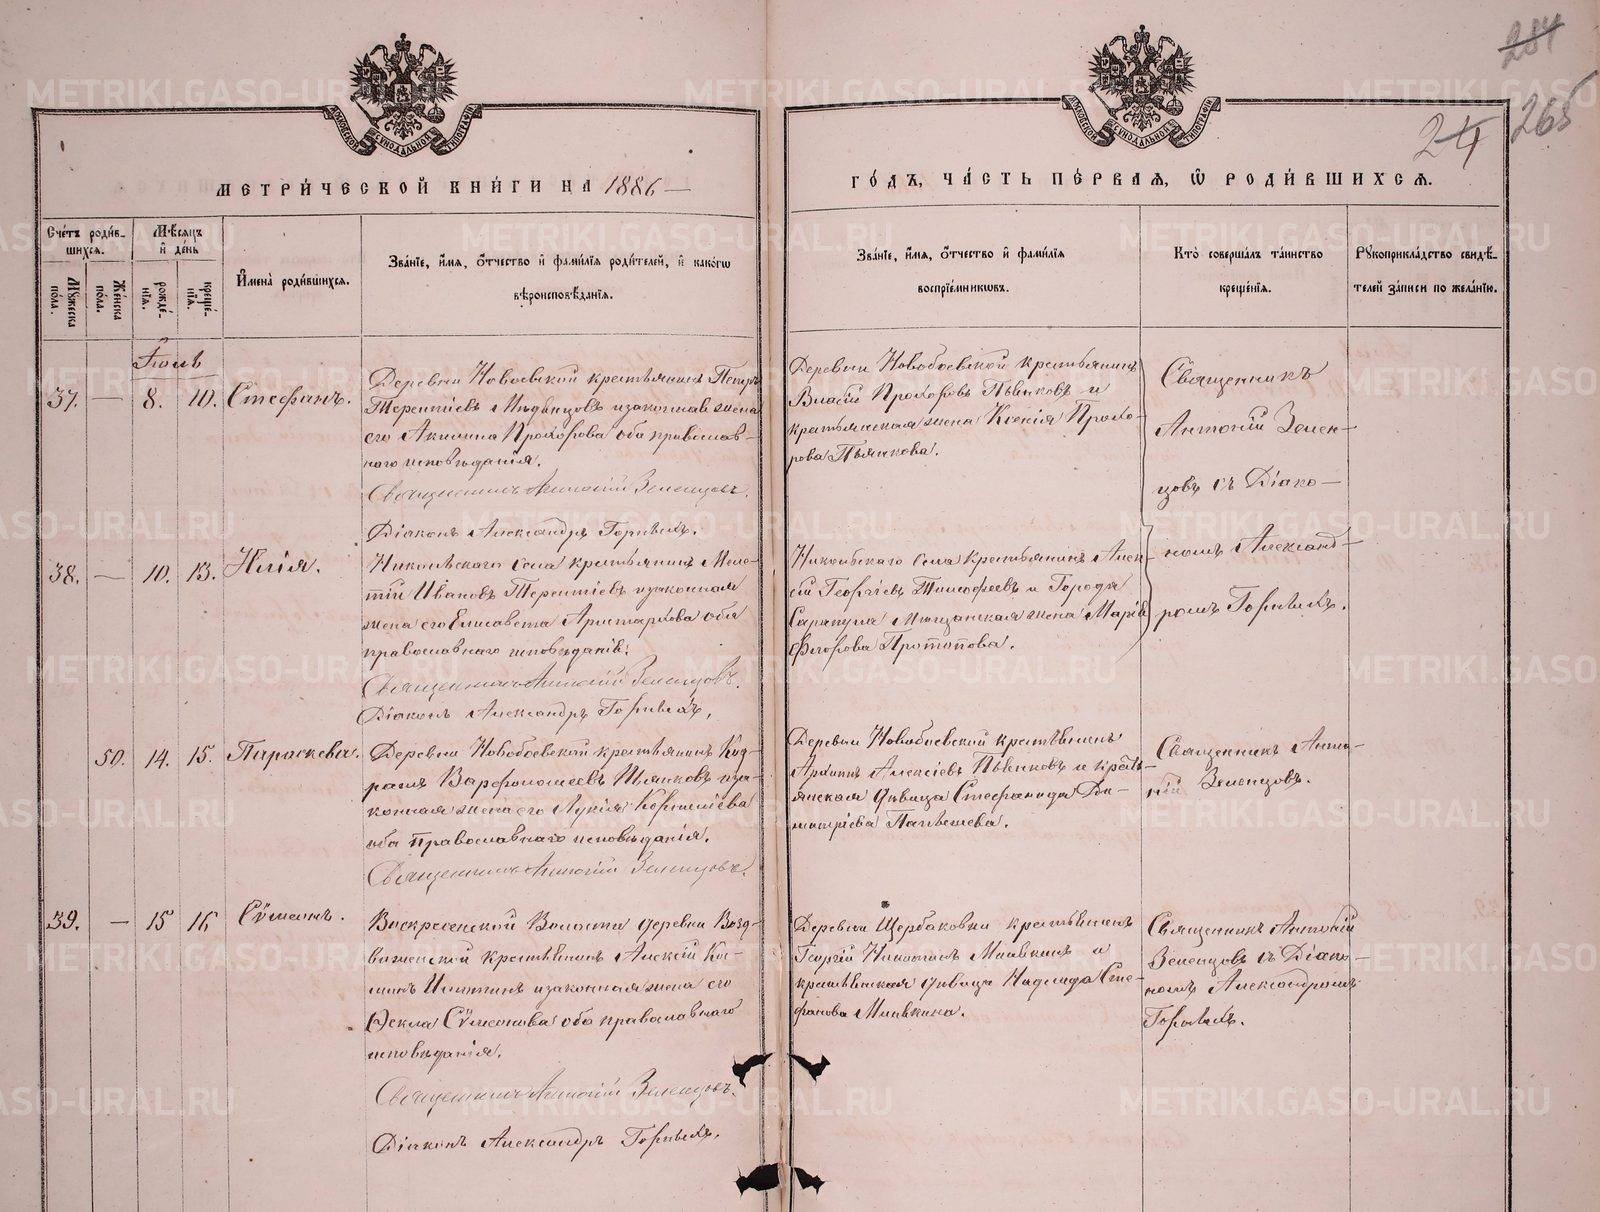 284
265
24
МОСКОВСКОЙ СѴНОДАЛЬНОЙ ТИПОГРАФІИ
МОСКОВСКОЙ СѴНОДАЛЬНОЙ ТИПОГРАФІИ
МЕТРИ́ЧЕСКОЙ КНИ́ГИ НА 1886
ГО́ДЪ, ЧА́СТЬ ПЕ́РВАЯ, Ѡ҆ РОДИ́ВШИХСЯ.
Сче́тъ роди́в-
шихся.
Мѣ́сяцъ
и҆ де́нь
Му́жеска по́ла.
Же́нска по́ла.
рожде́-нїя.
креще́-нїя.
И҆мена̀ роди́вшихся.
Зва́нїе, и҆́мя, ѻ҆́тчество и҆ фами́лїя роди́телей, и҆ како́гѡ
вѣроисповѣ́данїя.
Зва́нїе, и҆́мя, ѻ҆́тчество и҆ фами́лїя
воспрїе́мникѡвъ.
Кто̀ соверша́лъ та́инство
креще́нїя.
Рꙋкоприкла́дство свидѣ́-
телей за́писи по жела́нїю.
Іюль
37. — 8. 10. Стефанъ.
крестьянинъ Петръ
Терентіевъ законная жена
его Акилина Прохорова оба православ-
наго исповѣданія.
Священникъ Антоній Зеленцовъ.
Діаконъ Александръ Горныхъ.
Деревни Новобоевской крестьянинъ
Власій Прохоровъ Пьянковъ и
крестьянская жена Ксенія Прохо-
рова Пьянкова.
Священникъ
Антоній Зелен-
цовъ съ Діако-
номъ Александ-
ромъ Горныхъ.
38. — 10. 13. Илія.
Никольскаго села крестьянинъ Меле-
тій Ивановъ Терентіевъ и законная
жена его Елисавета Аристархова оба
православнаго исповѣданія.
Священникъ Антоній Зеленцовъ.
Діаконъ Александръ Горныхъ.
Никольскаго Села крестьянинъ Алек-
сій Георгіевъ Тимофеевъ и Города
Сарапула Мѣщанская жена Марія
Протопопова.
50. 14. 15. Параскева.
Деревни Новобоевской крестьянинъ Код-
ратъ Варфоломеевъ Пьянковъ и за-
конная жена его Лукія
оба православнаго исповѣданія.
Священникъ Антоній Зеленцовъ.
Деревни Новобоевской крестьянинъ
Архипъ Алексіевъ Пьянковъ и кресть-
янская дѣвица Стефанида Ди-
митріева
Священникъ Анто-
ній Зеленцовъ.
39. — 15 16 Сѵмеонъ.
Воскресенской Волости деревни Возд-
виженской крестьянинъ Алексій Кос-
минъ и законная жена его
Ѳекла Сѵмеонова оба православнаго
исповѣданія.
Священникъ Антоній Зеленцовъ.
Діаконъ Александръ Горныхъ.
Деревни Щербаковки крестьянинъ
Георгій Никитинъ Мишкинъ и
крестьянская дѣвица Надежда Сте-
фанова Мишкина.
Священникъ Антоній
Зеленцовъ съ Діако-
номъ Александромъ
Горныхъ.
METRIKI.GASO-URAL.RU